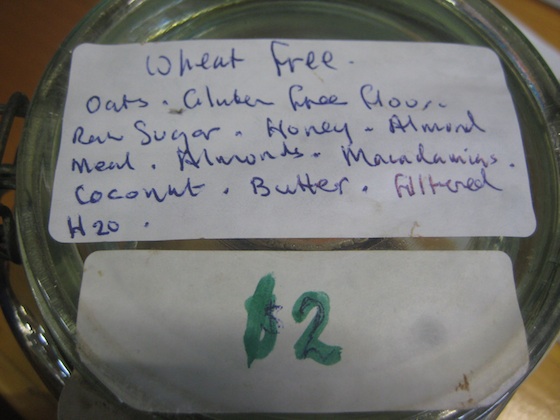 Wheat Free.
Oats. Gluten Free Flour.
Raw Sugar. Honey. Almond
Meal. Almonds. Macadamias.
Coconut. Butter. Filtered
H20.
$2